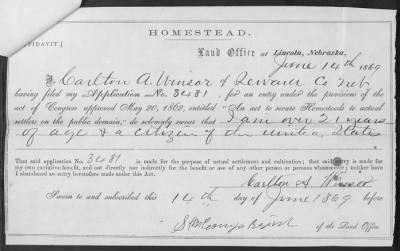 HOMESTEAD.
AFFIDAVIT.]
Land Office at Lincoln, Nebraska,
June 14th 1869
I, Carlton A. Winsor of Seward Co Neb
having filed my Application No. 3481, for an entry under the provisions of the
act of Congress approved May 20, 1862, entitled "An act to secure Homesteads to actual
settlers on the public domain," do solemnly swear that I am over 21 years
of age & a citizen of the United States
That said application No. 3481 is made for the purpose of actual settlement and cultivation; that said entry is made for
my own exclusive benefit, and not directly nor indirectly for the benefit or use of any other person or persons whomsoever; neither have
I abandoned an entry heretofore made under this Act.
Carlton A Winsor
Sworn to and subscribed this 14th day of June 1869 before
of the Land Office.